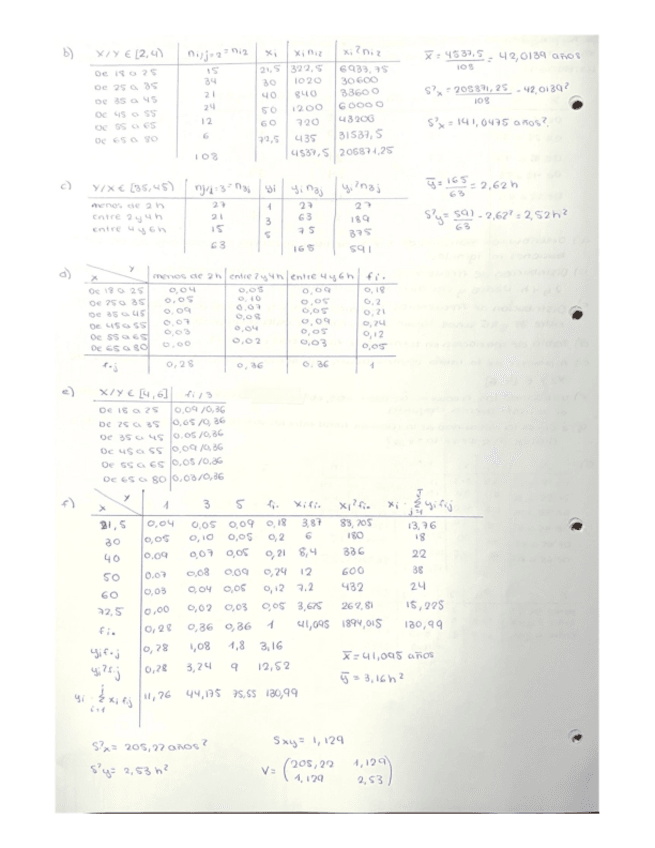 b) X/Y ∈ [2,4) | ni/j=2 = ni2 | xi | xi ni2 | xi² ni2
De 18 a 25 | 15 | 21,5 | 322,5 | 6933,75
De 25 a 35 | 34 | 30 | 1020 | 30600
De 35 a 45 | 21 | 40 | 840 | 33600
De 45 a 55 | 24 | 50 | 1200 | 60000
De 55 a 65 | 12 | 60 | 720 | 43200
De 65 a 80 | 6 | 72,5 | 435 | 31537,5
108 | 4537,5 | 205871,25
x̄ = 4537,5 / 108 = 42,0139 años
S²x = 205871,25 / 108 - 42,0139²
S²x = 141,0475 años².
c) Y/X ∈ [35,45) | nj/i=3 = n3j | yi | yi n3j | yi² n3j
menos de 2h | 27 | 1 | 27 | 27
entre 2 y 4h | 21 | 3 | 63 | 189
entre 4 y 6h | 15 | 5 | 75 | 375
63 | 165 | 591
ȳ = 165 / 63 = 2,62 h
S²y = 591 / 63 - 2,62² = 2,52 h²
d) X \ Y | menos de 2h | entre 2 y 4h | entre 4 y 6h | fi.
De 18 a 25 | 0,04 | 0,05 | 0,09 | 0,18
De 25 a 35 | 0,05 | 0,10 | 0,05 | 0,2
De 35 a 45 | 0,09 | 0,07 | 0,05 | 0,21
De 45 a 55 | 0,07 | 0,08 | 0,09 | 0,24
De 55 a 65 | 0,03 | 0,04 | 0,05 | 0,12
De 65 a 80 | 0,00 | 0,02 | 0,03 | 0,05
f.j | 0,28 | 0,36 | 0,36 | 1
e) X/Y ∈ [4,6] | fi/3
De 18 a 25 | 0,09/0,36
De 25 a 35 | 0,05/0,36
De 35 a 45 | 0,05/0,36
De 45 a 55 | 0,09/0,36
De 55 a 65 | 0,05/0,36
De 65 a 80 | 0,03/0,36
f) X \ Y | 1 | 3 | 5 | fi. | xi fi. | xi² fi. | xi · Σ yi fij
21,5 | 0,04 | 0,05 | 0,09 | 0,18 | 3,87 | 83,205 | 13,76
30 | 0,05 | 0,10 | 0,05 | 0,2 | 6 | 180 | 18
40 | 0,09 | 0,07 | 0,05 | 0,21 | 8,4 | 336 | 22
50 | 0,07 | 0,08 | 0,09 | 0,24 | 12 | 600 | 38
60 | 0,03 | 0,04 | 0,05 | 0,12 | 7,2 | 432 | 24
72,5 | 0,00 | 0,02 | 0,03 | 0,05 | 3,625 | 262,81 | 15,225
fi. | 0,28 | 0,36 | 0,36 | 1 | 41,095 | 1894,015 | 130,99
yi f.j | 0,28 | 1,08 | 1,8 | 3,16
yi² f.j | 0,28 | 3,24 | 9 | 12,52
yi · Σ xi fij | 11,26 | 44,175 | 75,55 | 130,99
x̄ = 41,095 años
ȳ = 3,16 h²
S²x = 205,22 años²
Sxy = 1,129
S²y = 2,53 h²
V = (205,22 1,129
1,129 2,53)